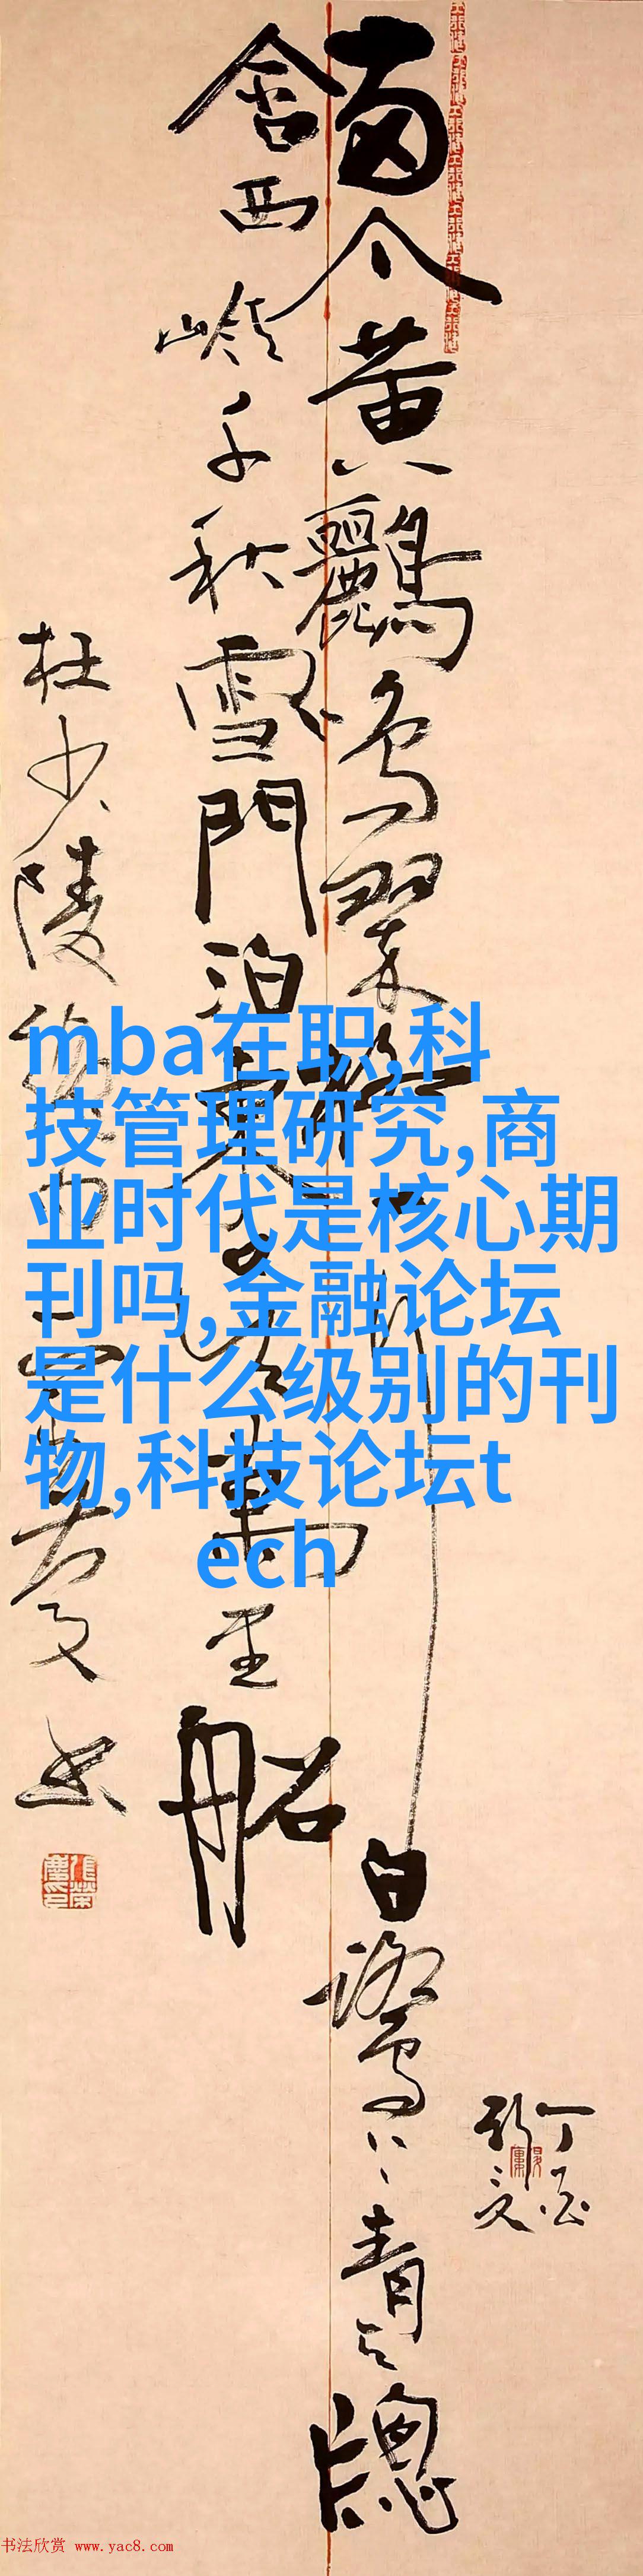 兩个黃鸝鳴翠柳一行白鷺上青天牕
含西嶺千秋雪門泊東吳萬里船
杜少陵
丁酉
mba在职,科
技管理研究,商
业时代是核心期
刊吗,金融论坛
是什么级别的刊
物,科技论坛t
ech
书法欣赏 www.yac8.com